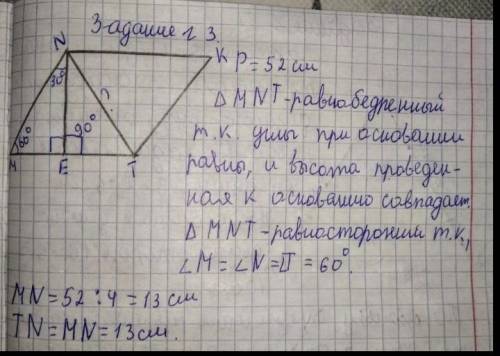 Задание № 3.
N
K
P = 52 см
30°
?
60°
90°
M
E
T
△ MNT - равнобедренный
т.к. углы при основании
равны, и высота проведен-
ная к основанию совпадает.
△ MNT - равносторонний т.к.,
∠M = ∠N = ∠T = 60°.
MN = 52 : 4 = 13 см
TN = MN = 13 см.